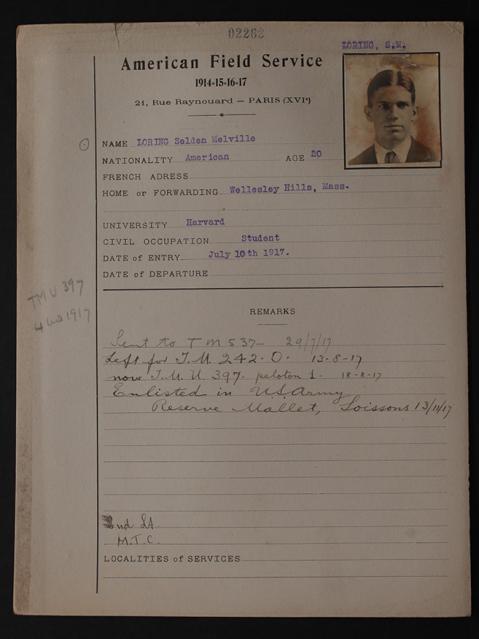 02262
LORING, S.M.
American Field Service
1914-15-16-17
21, Rue Raynouard — PARIS (XVIe)
NAME LORING Selden Melville
NATIONALITY American AGE 20
FRENCH ADRESS
HOME or FORWARDING Wellesley Hills, Mass.
UNIVERSITY Harvard
CIVIL OCCUPATION Student
DATE of ENTRY July 10th 1917.
DATE of DEPARTURE
TMU 397
1917
REMARKS
Sent to TM 537 29/7/17
Left for T.M 242.O. 13-8-17
now T.M.U 397. peloton 1. 18-8-17
Enlisted in US Army
Reserve Mallet, Soissons 13/11/17
2nd Lt
M.T.C.
LOCALITIES of SERVICES